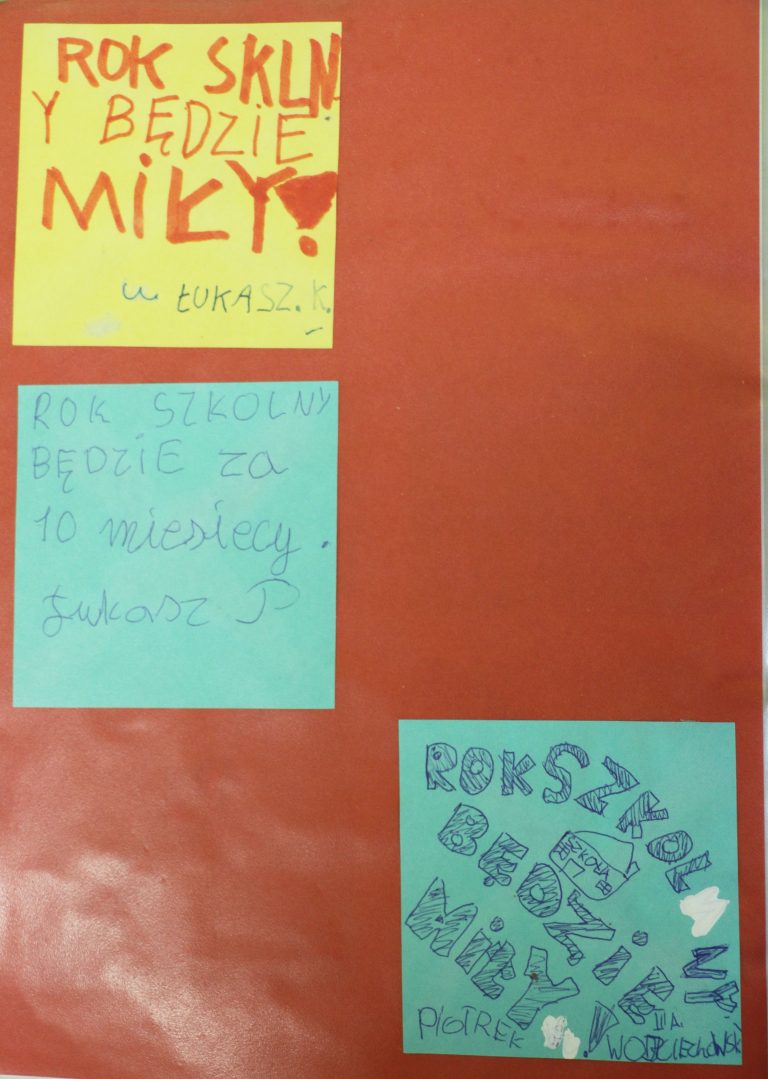 ROK SKLN
Y BĘDZIE
MIŁY!
ŁUKASZ. K.
ROK SZKOLNY
BĘDZIE za
10 miesięcy.
Łukasz P
ROK SZKOL
NY
BĘDZIE
SZKOŁA
MIŁY!
PIOTREK
III A.
WOJCIECHOWSKI